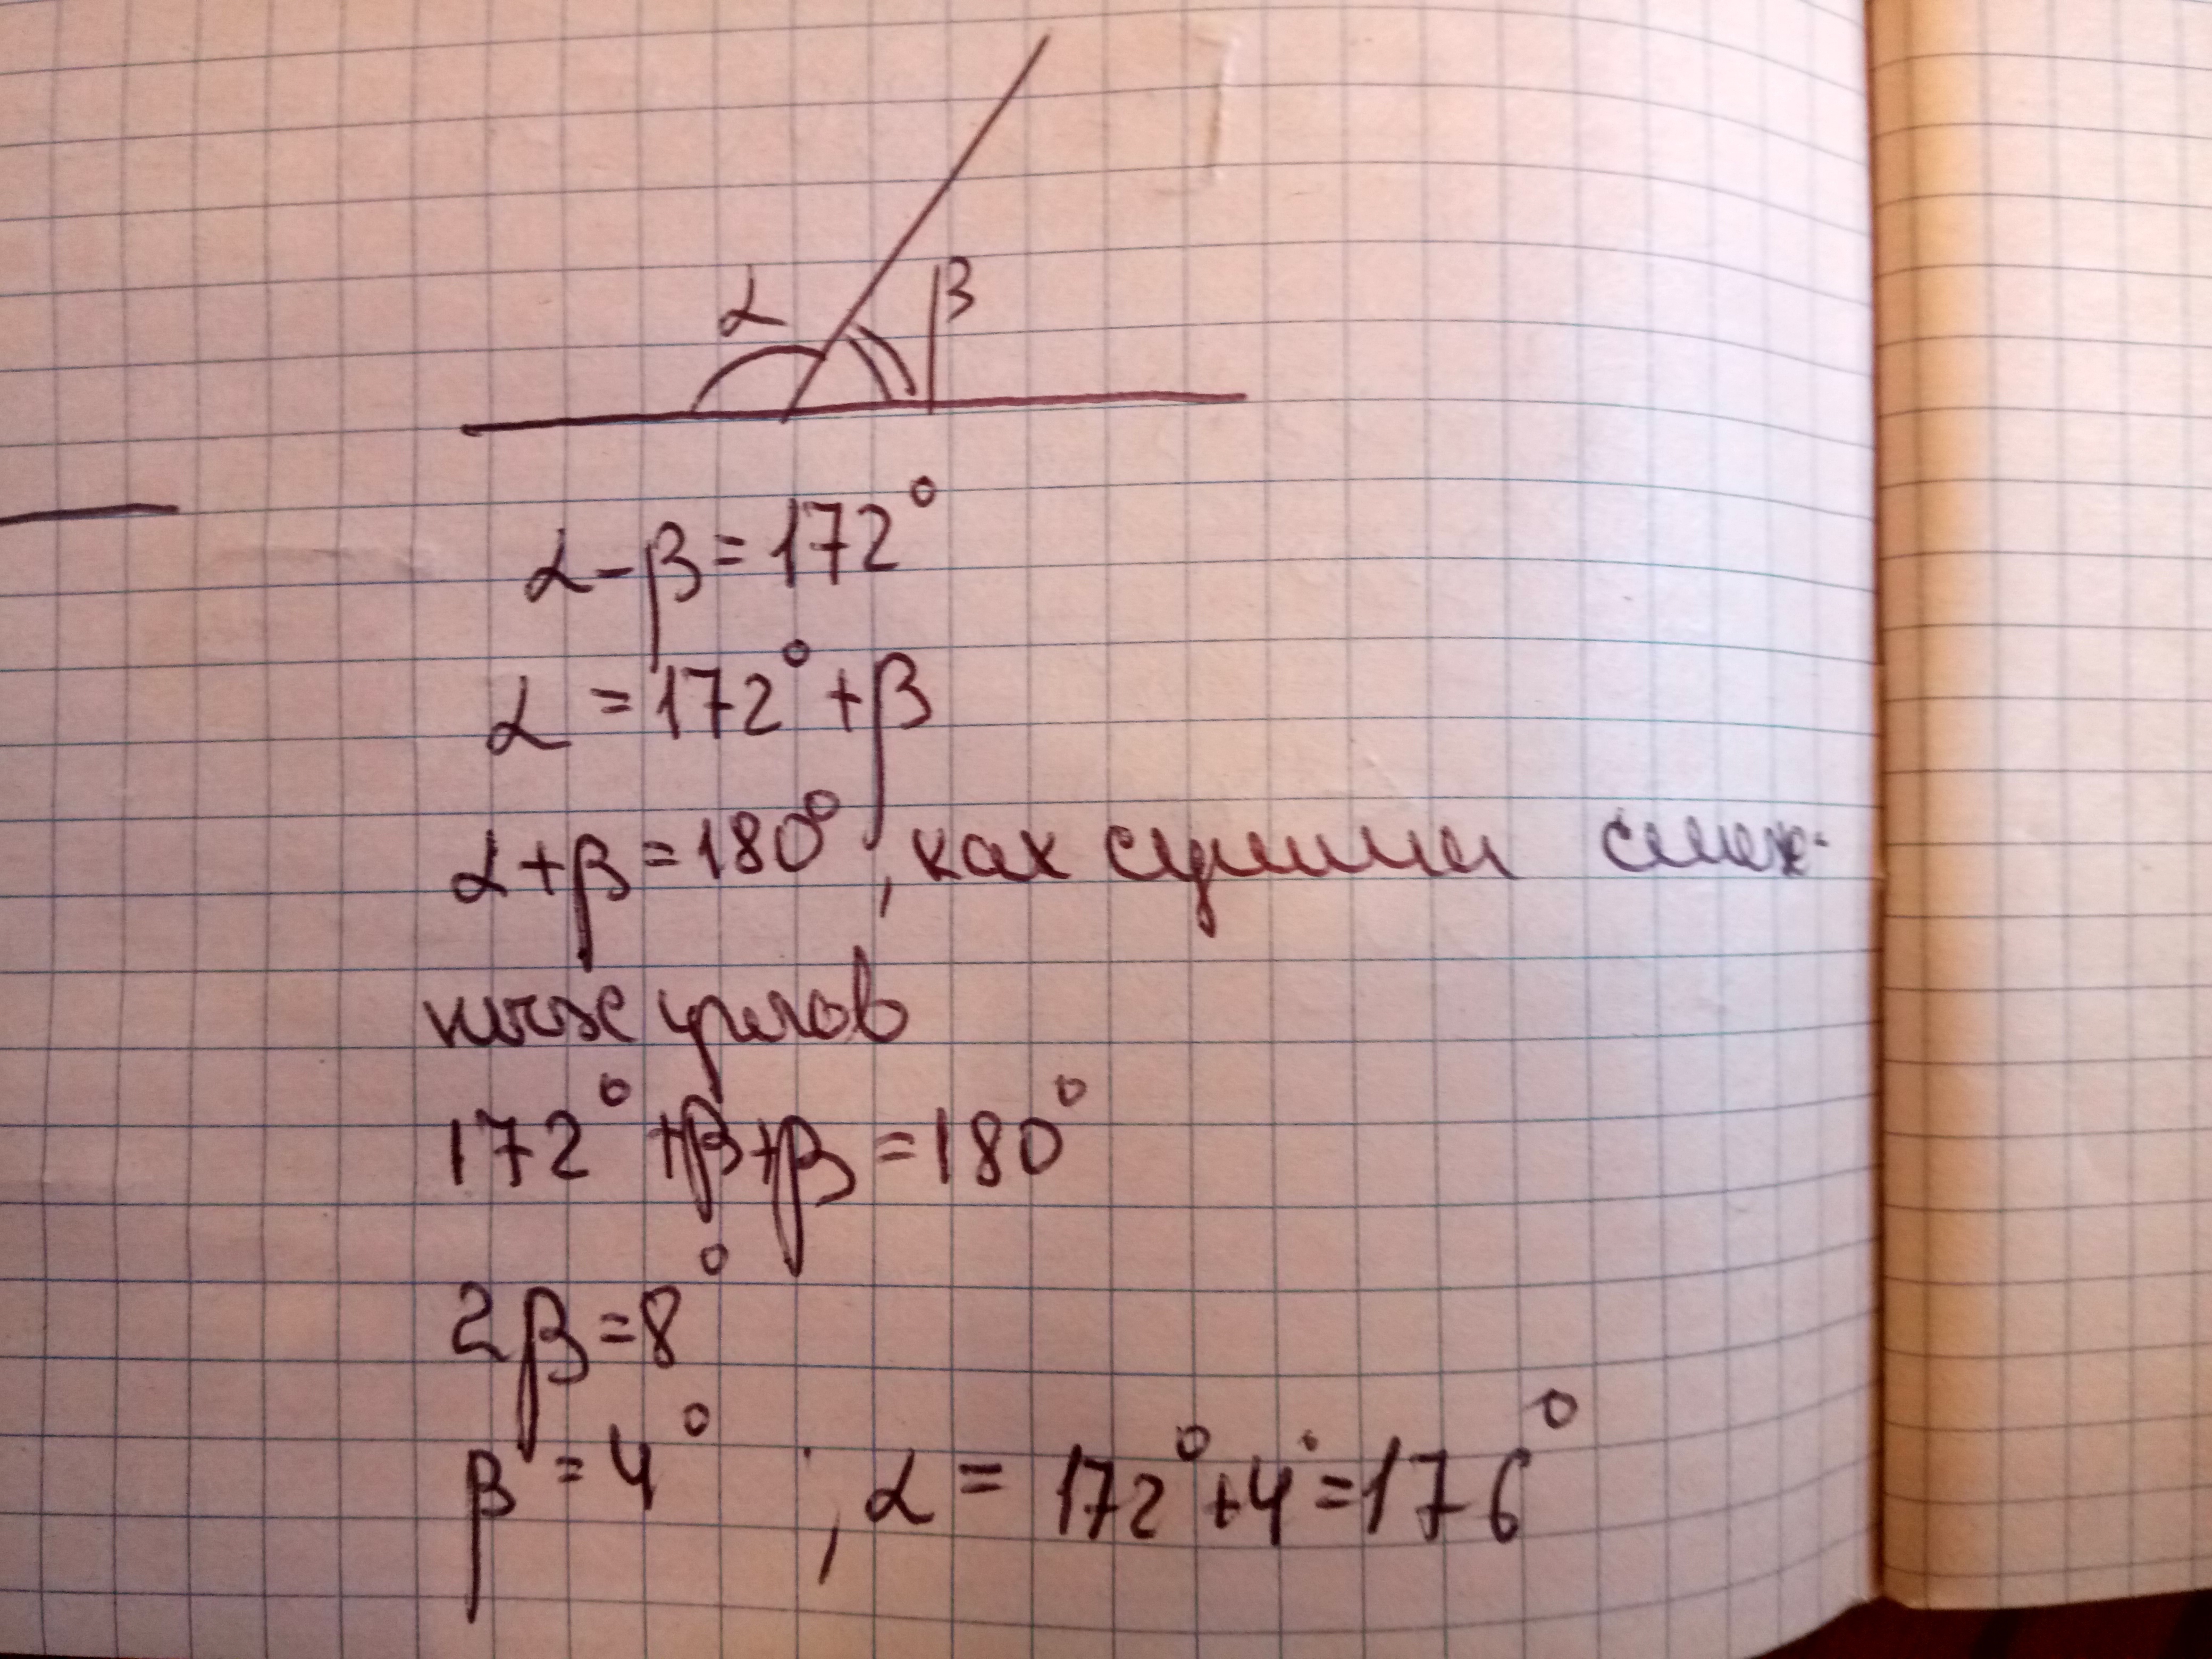 α β
α-β=172°
α=172°+β
α+β=180°, как сумма смеж-
ных углов
172°+β+β=180°
2β=8°
β=4° ; α=172°+4°=176°